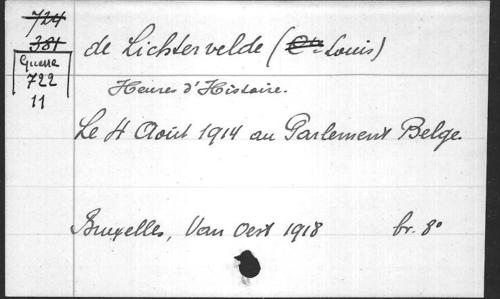 724
381
Guerre
722
11
de Lichtervelde (Cte Louis)
Heures d'Histoire.
Le 4 Août 1914 au Parlement Belge.
Bruxelles, Van Oest 1918 br. 8°